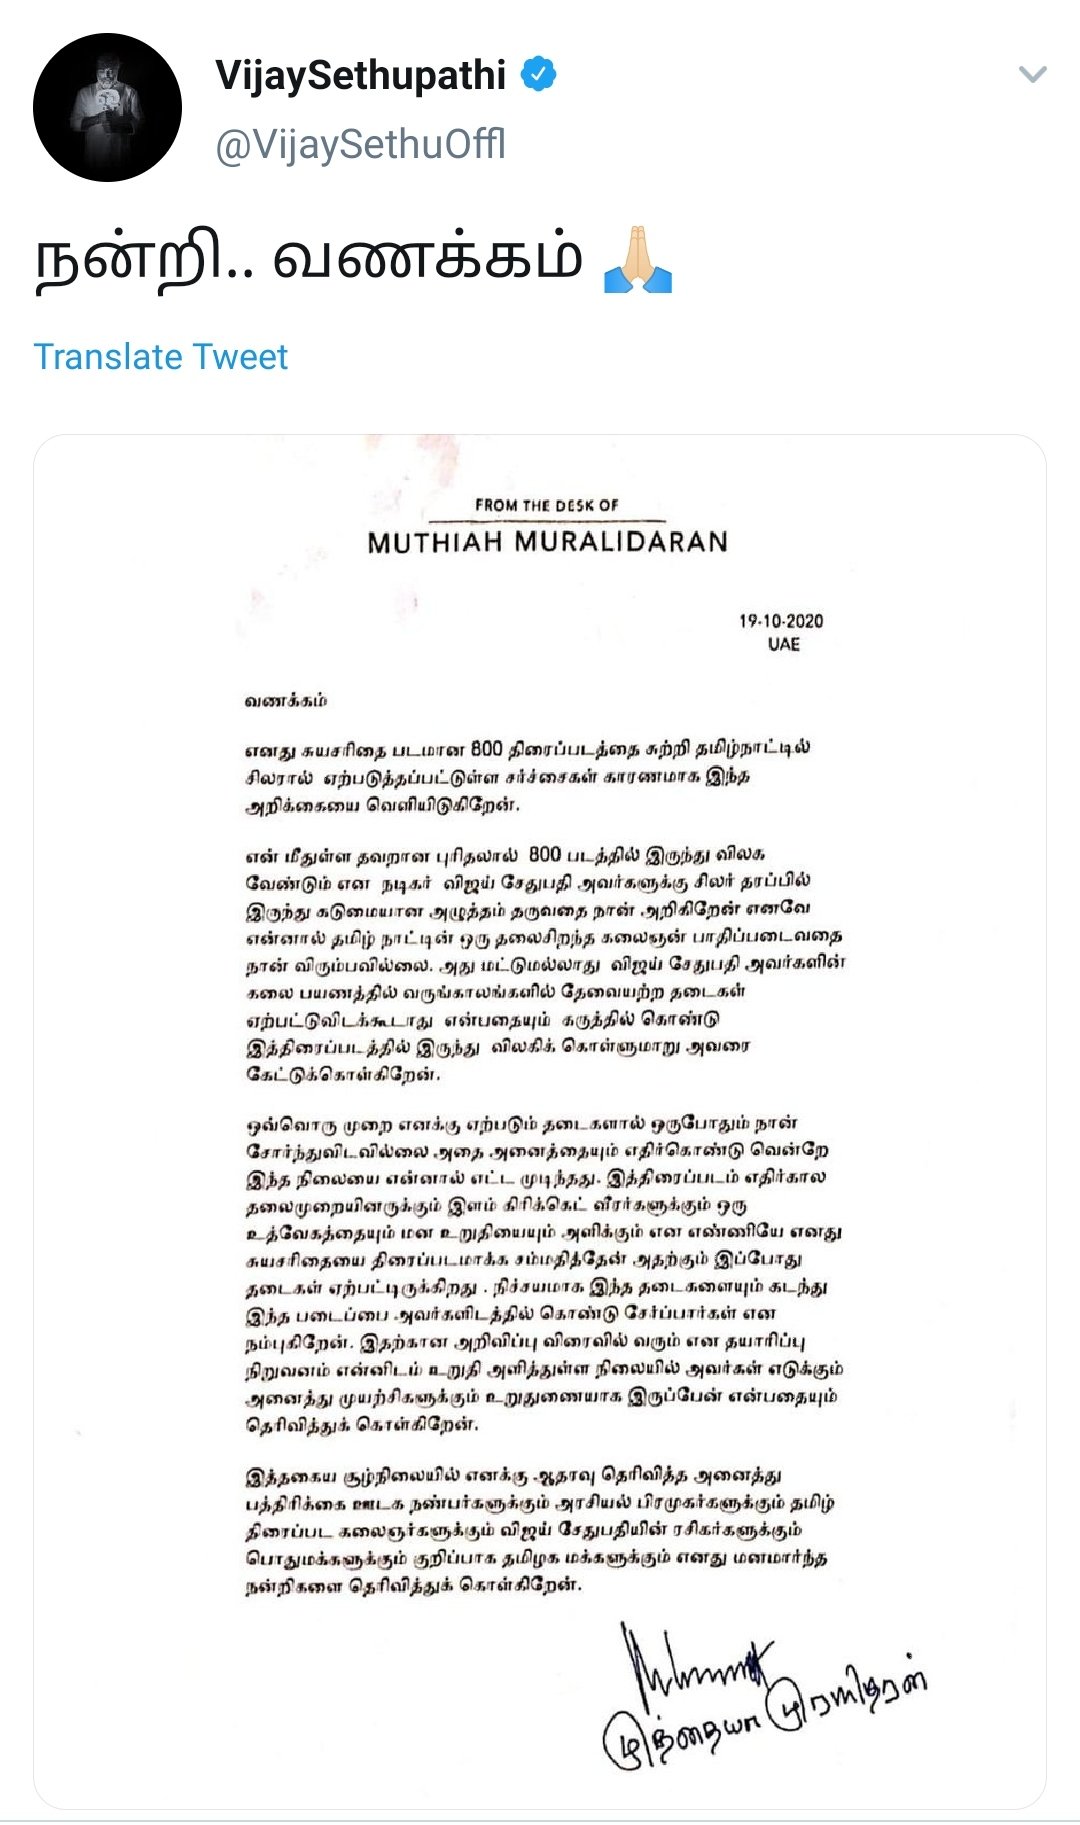 VijaySethupathi
@VijaySethuOffl
நன்றி.. வணக்கம் 🙏🏻
Translate Tweet
FROM THE DESK OF
MUTHIAH MURALIDARAN
19-10-2020
UAE
வணக்கம்
எனது சுயசரிதை படமான 800 திரைப்படத்தை சுற்றி தமிழ்நாட்டில்
சிலரால் ஏற்படுத்தப்பட்டுள்ள சர்ச்சைகள் காரணமாக இந்த
அறிக்கையை வெளியிடுகிறேன்.
என் மீதுள்ள தவறான புரிதலால் 800 படத்தில் இருந்து விலக
வேண்டும் என நடிகர் விஜய் சேதுபதி அவர்களுக்கு சிலர் தரப்பில்
இருந்து கடுமையான அழுத்தம் தருவதை நான் அறிகிறேன் எனவே
என்னால் தமிழ் நாட்டின் ஒரு தலைசிறந்த கலைஞன் பாதிப்படைவதை
நான் விரும்பவில்லை. அது மட்டுமல்லாது விஜய் சேதுபதி அவர்களின்
கலை பயணத்தில் வருங்காலங்களில் தேவையற்ற தடைகள்
ஏற்பட்டுவிடக்கூடாது என்பதையும் கருத்தில் கொண்டு
இத்திரைப்படத்தில் இருந்து விலகிக் கொள்ளுமாறு அவரை
கேட்டுக்கொள்கிறேன்.
ஒவ்வொரு முறை எனக்கு ஏற்படும் தடைகளால் ஒருபோதும் நான்
சோர்ந்துவிடவில்லை அதை அனைத்தையும் எதிர்கொண்டு வென்றே
இந்த நிலையை என்னால் எட்ட முடிந்தது. இத்திரைப்படம் எதிர்கால
தலைமுறையினருக்கும் இளம் கிரிக்கெட் வீரர்களுக்கும் ஒரு
உத்வேகத்தையும் மன உறுதியையும் அளிக்கும் என எண்ணியே எனது
சுயசரிதையை திரைப்படமாக்க சம்மதித்தேன் அதற்கும் இப்போது
தடைகள் ஏற்பட்டிருக்கிறது . நிச்சயமாக இந்த தடைகளையும் கடந்து
இந்த படைப்பை அவர்களிடத்தில் கொண்டு சேர்ப்பார்கள் என
நம்புகிறேன். இதற்கான அறிவிப்பு விரைவில் வரும் என தயாரிப்பு
நிறுவனம் என்னிடம் உறுதி அளித்துள்ள நிலையில் அவர்கள் எடுக்கும்
அனைத்து முயற்சிகளுக்கும் உறுதுணையாக இருப்பேன் என்பதையும்
தெரிவித்துக் கொள்கிறேன்.
இத்தகைய சூழ்நிலையில் எனக்கு ஆதரவு தெரிவித்த அனைத்து
பத்திரிக்கை ஊடக நண்பர்களுக்கும் அரசியல் பிரமுகர்களுக்கும் தமிழ்
திரைப்பட கலைஞர்களுக்கும் விஜய் சேதுபதியின் ரசிகர்களுக்கும்
பொதுமக்களுக்கும் குறிப்பாக தமிழக மக்களுக்கும் எனது மனமார்ந்த
நன்றிகளை தெரிவித்துக் கொள்கிறேன்.
முத்தையா முரளிதரன்